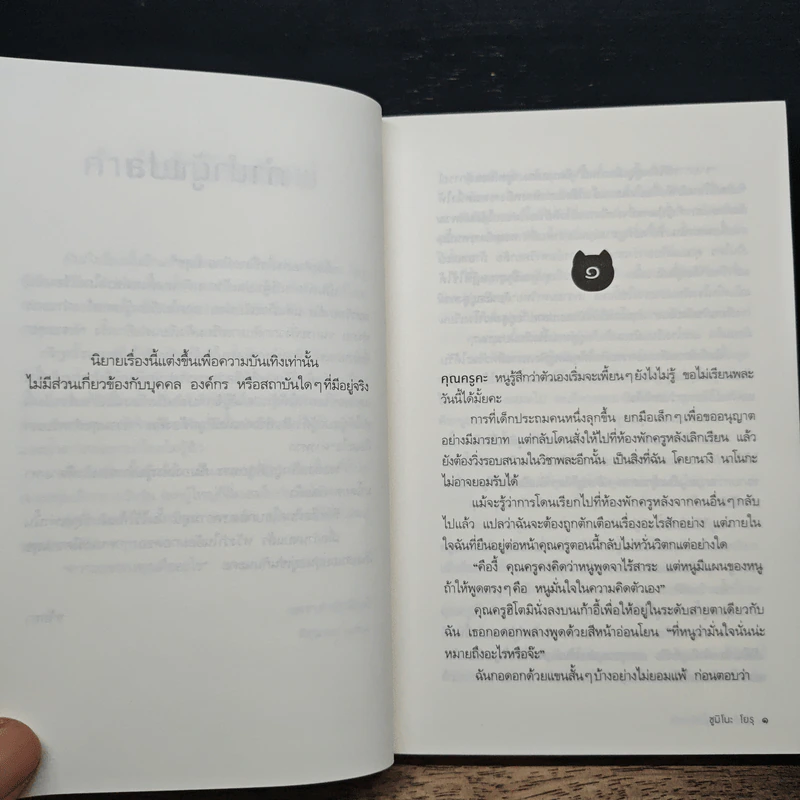 นิยายเรื่องนี้แต่งขึ้นเพื่อความบันเทิงเท่านั้น
ไม่มีส่วนเกี่ยวข้องกับบุคคล องค์กร หรือสถาบันใดๆที่มีอยู่จริง
๑
คุณครูคะ หนูรู้สึกว่าตัวเองเริ่มจะเพี้ยนๆยังไงไม่รู้ ขอไม่เรียนพละ
วันนี้ได้มั้ยคะ
การที่เด็กประถมคนหนึ่งลุกขึ้น ยกมือเล็กๆเพื่อขออนุญาต
อย่างมีมารยาท แต่กลับโดนสั่งให้ไปที่ห้องพักครูหลังเลิกเรียน แล้ว
ยังต้องวิ่งรอบสนามในวิชาพละอีกนั้น เป็นสิ่งที่ฉัน โคยานางิ นาโนกะ
ไม่อาจยอมรับได้
แม้จะรู้ว่าการโดนเรียกไปที่ห้องพักครูหลังจากคนอื่นๆกลับ
ไปแล้ว แปลว่าฉันจะต้องถูกตักเตือนเรื่องอะไรสักอย่าง แต่ภายใน
ใจฉันที่ยืนอยู่ต่อหน้าคุณครูตอนนี้กลับไม่หวั่นวิตกแต่อย่างใด
“คืองี้ คุณครูคงคิดว่าหนูพูดจาไร้สาระ แต่หนูมีแผนของหนู
ถ้าให้พูดตรงๆคือ หนูมั่นใจในความคิดตัวเอง”
คุณครูฮิโตมินั่งลงบนเก้าอี้เพื่อให้อยู่ในระดับสายตาเดียวกับ
ฉัน เธอกอดอกพลางพูดด้วยสีหน้าอ่อนโยน “ที่หนูว่ามั่นใจนั่นน่ะ
หมายถึงอะไรหรือจ๊ะ”
ฉันกอดอกด้วยแขนสั้นๆบ้างอย่างไม่ยอมแพ้ ก่อนตอบว่า
ซูมิโนะ โยรุ ๑